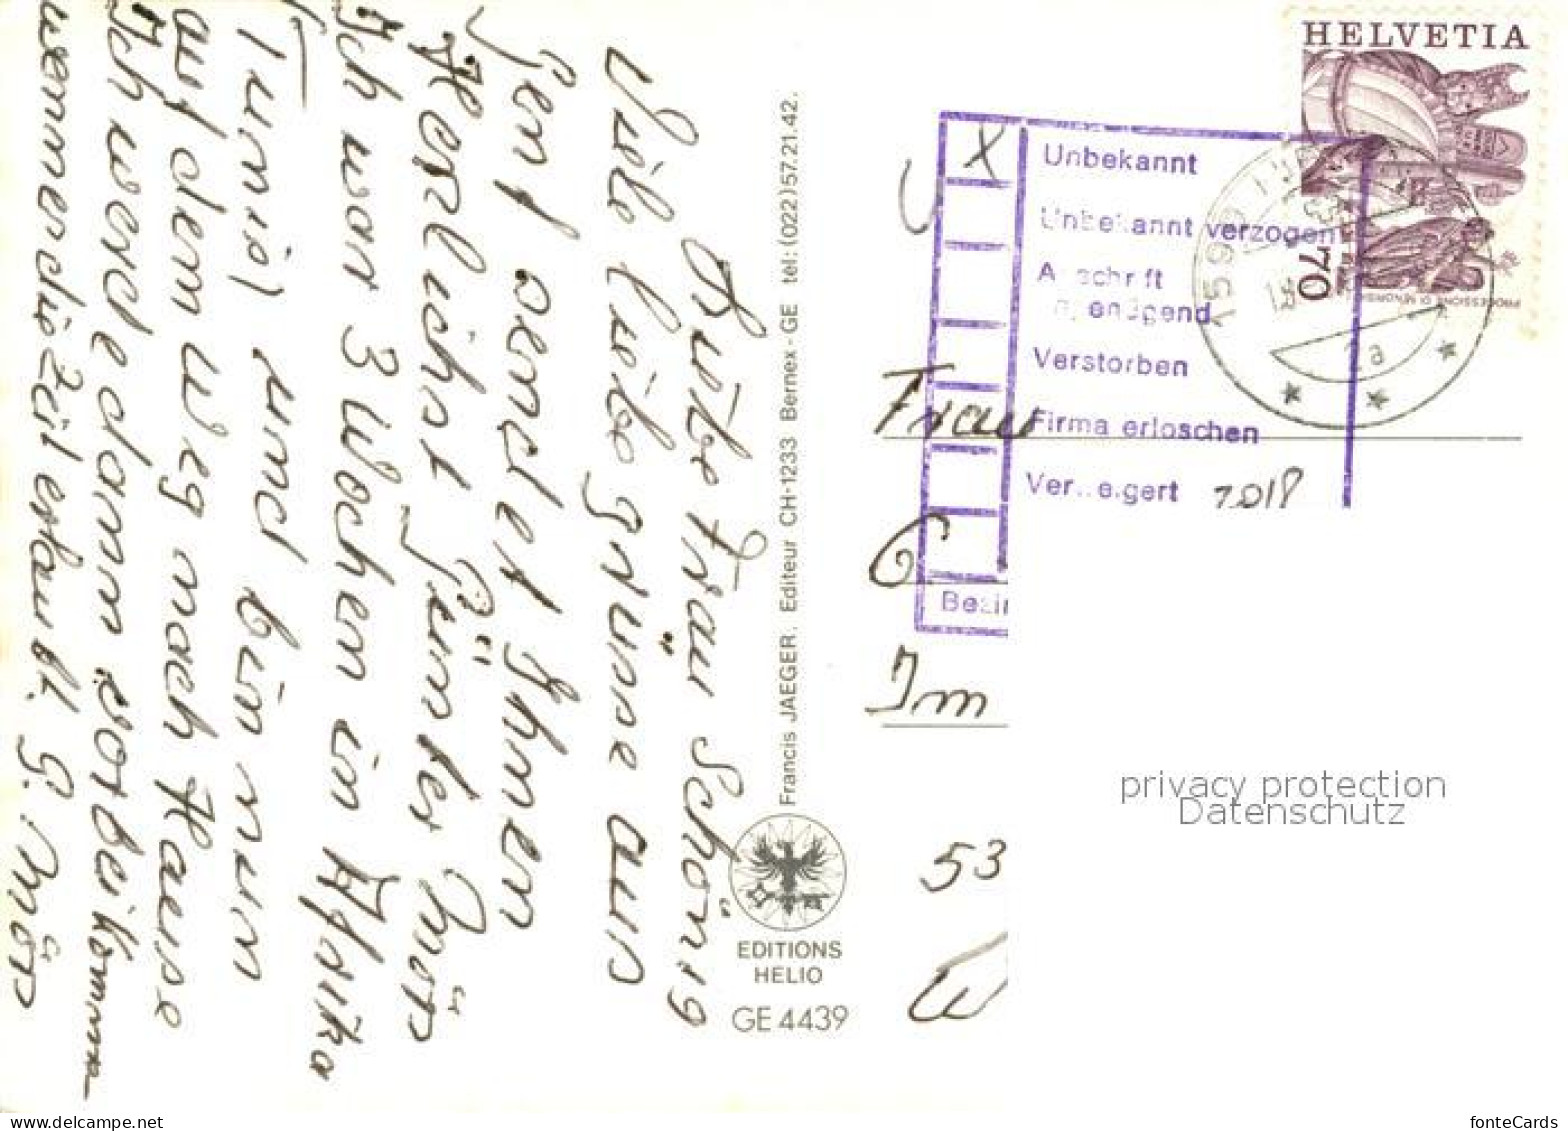 Liebe Frau Schönig
Viele liebe grüsse aus
Genf sendet Ihnen
Herzlichst Günter Möss
Ich war 3 Wochen in Afrika
Tunis) und bin nun
auf dem Weg nach Hause
Ich werde dann vorbei komm
wenn er die Zeit erlaubt. G. Möss
Francis JAEGER, Editeur CH-1233 Bernex-GE tél: (022) 57.21.42.
EDITIONS
HELIO
GE 4439
HELVETIA
70
PROCESSIONE DI MENDRISIO
X Unbekannt
Unbekannt verzogen
Anschrift
ungenügend
Verstorben
Firma erloschen
Verweigert
Bezir
2a
Frau
G
Im
53
W
privacy protection
Datenschutz
www.delcampe.net
fonteCards